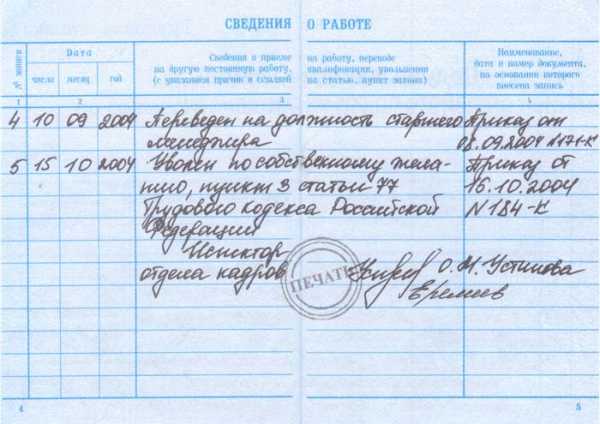 СВЕДЕНИЯ О РАБОТЕ
№ записи
Дата
число месяц год
Сведения о приеме на работу, переводе
на другую постоянную работу, квалификации, увольнении
(с указанием причин и ссылкой на статью, пункт закона)
Наименование,
дата и номер документа,
на основании которого
внесена запись
1 2 3 4
4 10 09 2004 Переведен на должность старшего Приказ от
менеджера 08.09.2004 №171-К
5 15 10 2004 Уволен по собственному жела- Приказ от
нию, пункт 3 статьи 77 15.10.2004
Трудового кодекса Российской N 184-К
Федерации
Инспектор
отдела кадров ПЕЧАТЬ О.М. Устинова
Еремеев
4 5